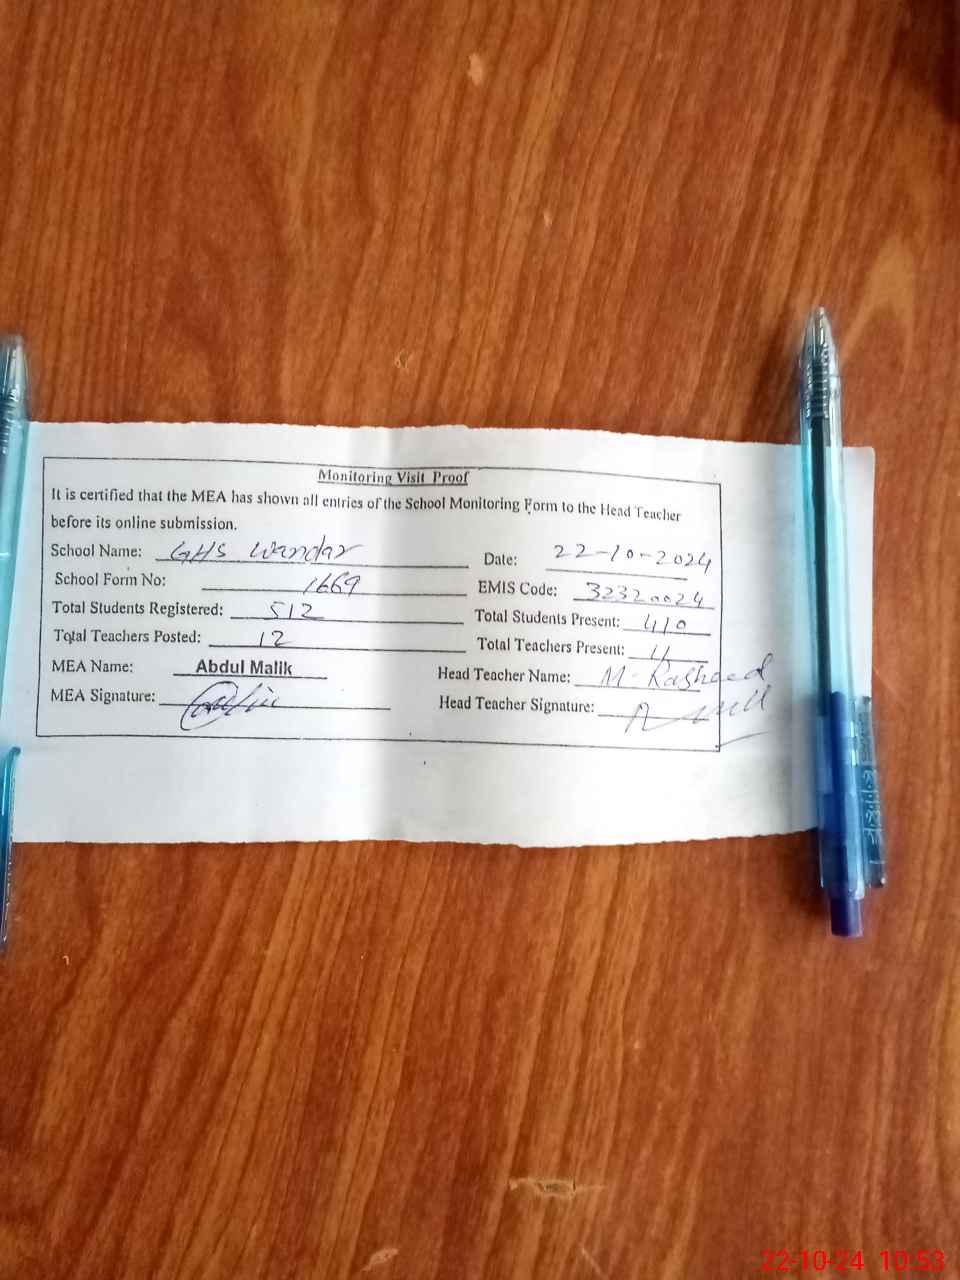 Monitoring Visit Proof
It is certified that the MEA has shown all entries of the School Monitoring Form to the Head Teacher
before its online submission.
School Name: GHS Wandar Date: 22-10-2024
School Form No: 1669 EMIS Code: 32320024
Total Students Registered: 512 Total Students Present: 410
Total Teachers Posted: 12 Total Teachers Present:
MEA Name: Abdul Malik Head Teacher Name: M. Rasheed
MEA Signature: Head Teacher Signature:
22-10-24 10:53